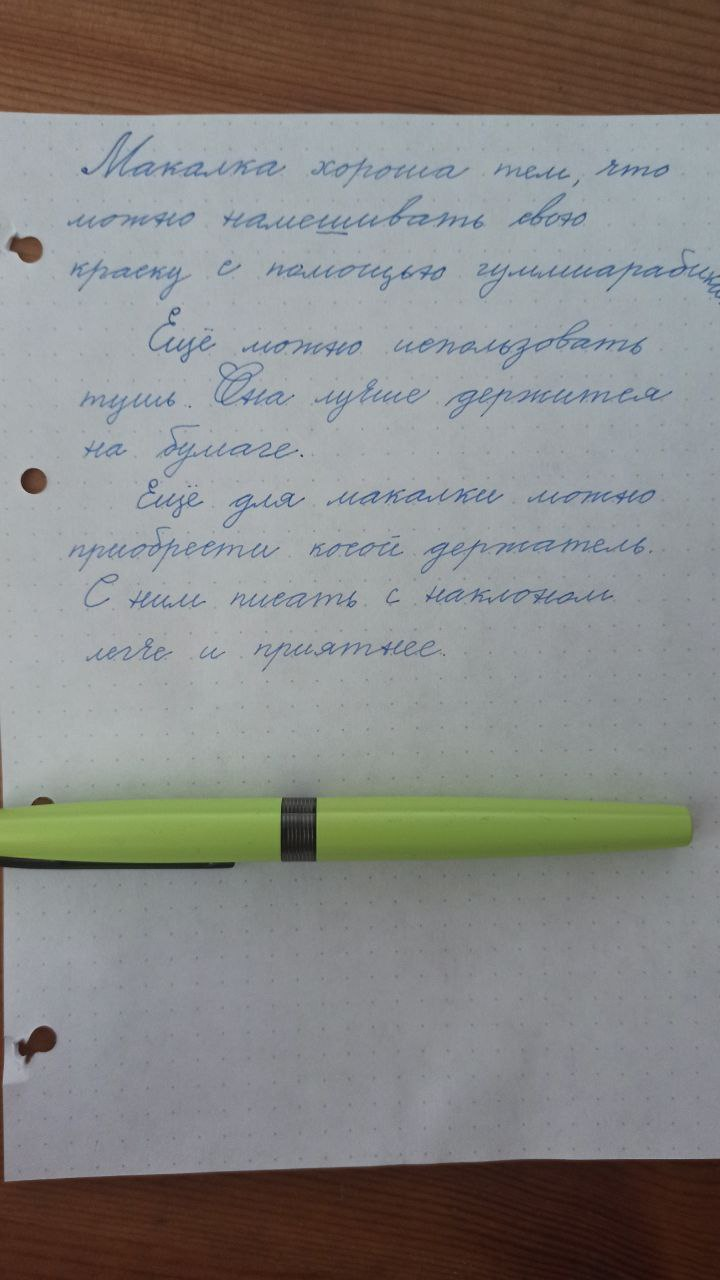 Макалка хороша тем, что
можно намешивать свою
краску с помощью гуммиарабика.
Ещё можно использовать
тушь. Она лучше держится
на бумаге.
Ещё для макалки можно
приобрести косой держатель.
С ним писать с наклоном
легче и приятнее.